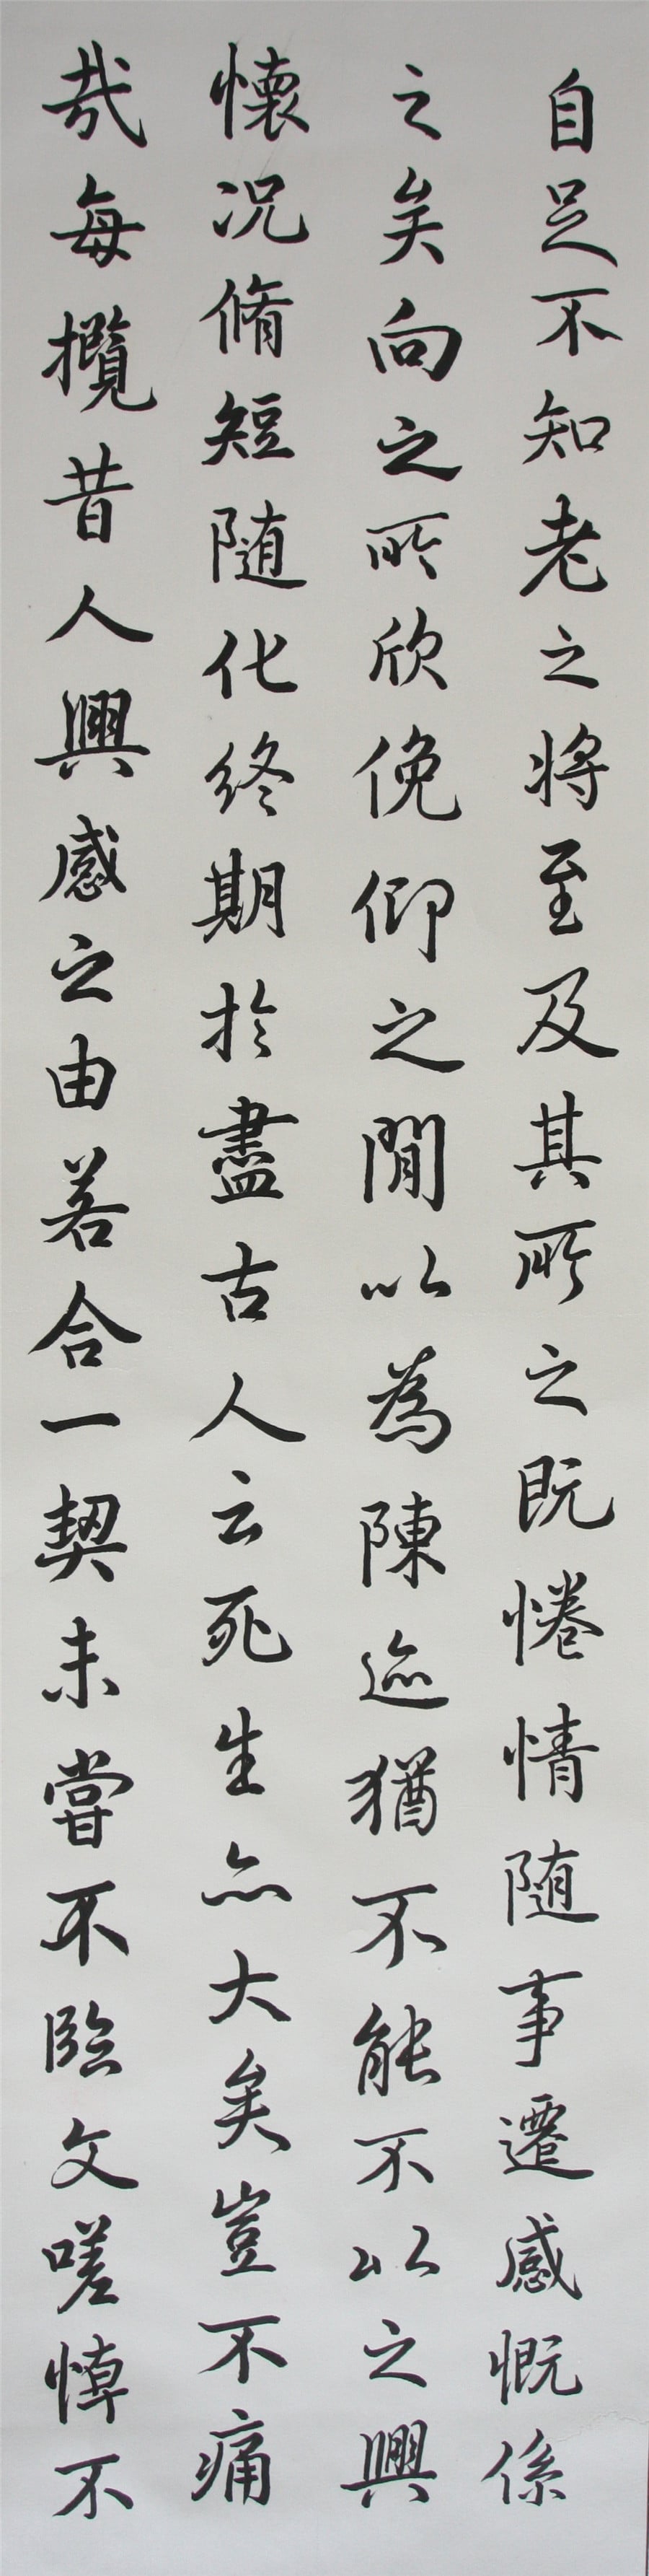 自足不知老之将至及其所之既惓情随事遷感慨係
之矣向之所欣俛仰之閒以為陳迹猶不能不以之興
懷况脩短随化终期於盡古人云死生亦大矣豈不痛
哉每攬昔人興感之由若合一契未嘗不臨文嗟悼不